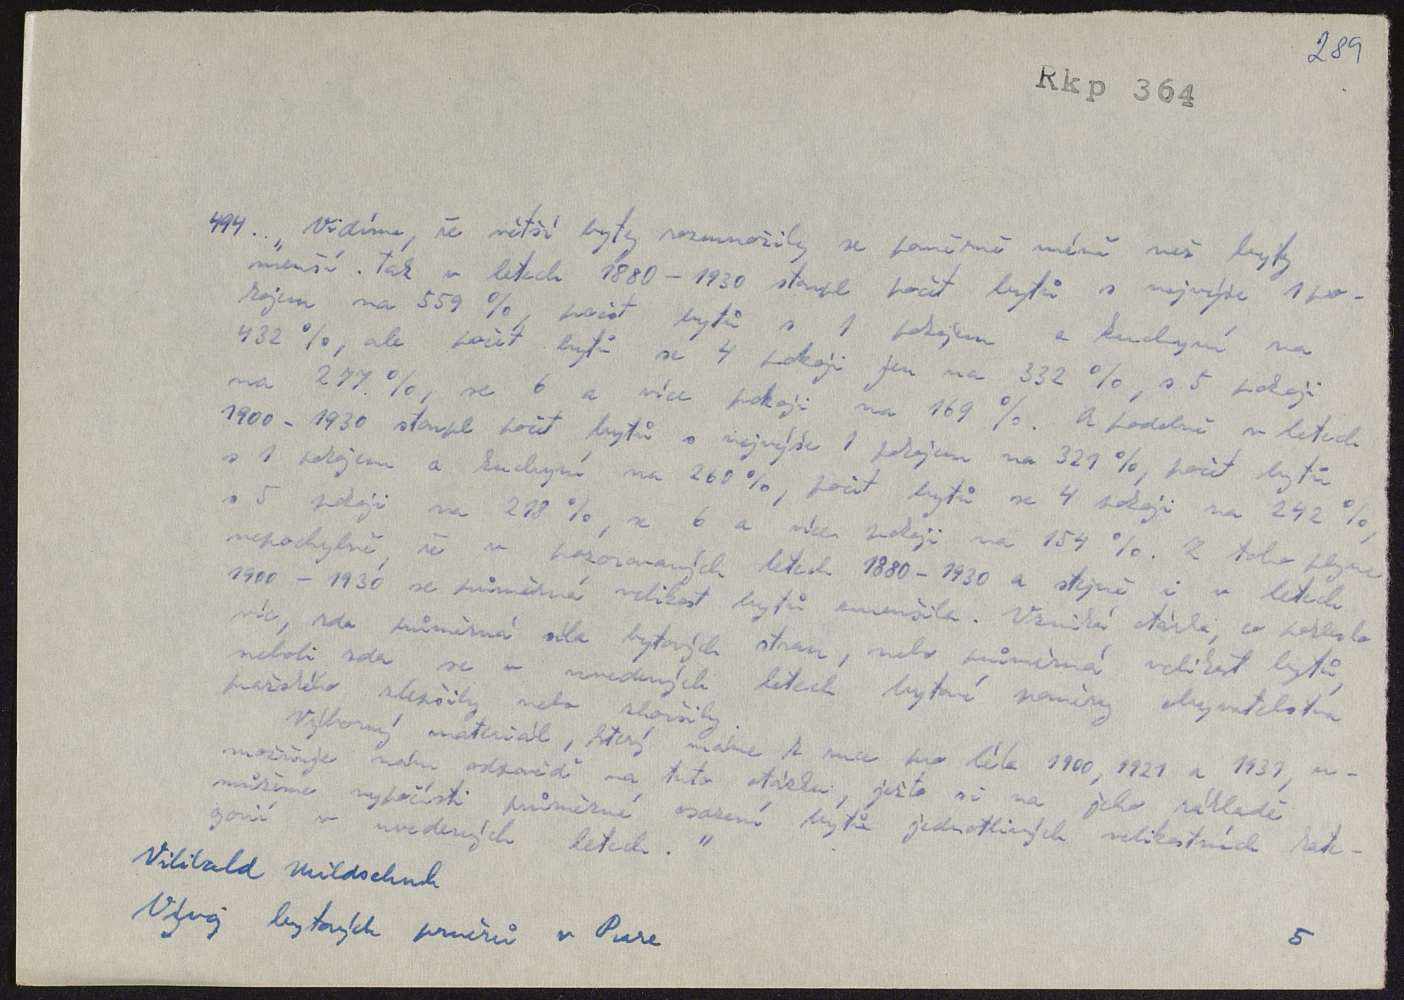 289
Rkp 364
494. „Vidíme, že větší byty rozmnožily se poměrně méně než byty
menší. Tak v letech 1880 – 1930 stoupl počet bytů s nejvýše 1 po-
kojem na 559 %, počet bytů s 1 pokojem a kuchyní na
432 %, ale počet bytů se 4 pokoji jen na 332 %, s 5 pokoji
na 277 %, se 6 a více pokoji na 169 %. A podobně v letech
1900 – 1930 stoupl počet bytů s nejvýše 1 pokojem na 321 %, počet bytů
s 1 pokojem a kuchyní na 260 %, počet bytů se 4 pokoji na 242 %,
s 5 pokoji na 218 %, se 6 a více pokoji na 154 %. Z toho plyne
nepochybně, že v pozorovaných letech 1880 – 1930 a stejně i v letech
1900 – 1930 se průměrná velikost bytů zmenšila. Vzniká otázka, co pokleslo
víc, zda průměrná síla bytových stran, nebo průměrná velikost bytů,
neboli zda se v uvedených letech bytové poměry obyvatelstva
pražského zlepšily nebo zhoršily.
Výborný materiál, který máme k ruce pro léta 1900, 1921 a 1931, u-
možňuje nám odpověď na tuto otázku, ježto si na jeho základě
můžeme vypočísti průměrné osazení bytů jednotlivých velikostních kate-
gorií v uvedených letech."
Vilibald Mildschuh
Vývoj bytových poměrů v Praze
5